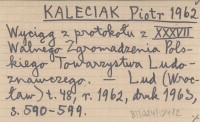 KALECIAK Piotr 1962
Wyciąg z protokołu z XXXVII
Walnego Zgromadzenia Pols-
kiego Towarzystwa Ludo-
znawczego. Lud (Wroc-
ław) t. 48, r. 1962, druk 1963,
s. 590-599.